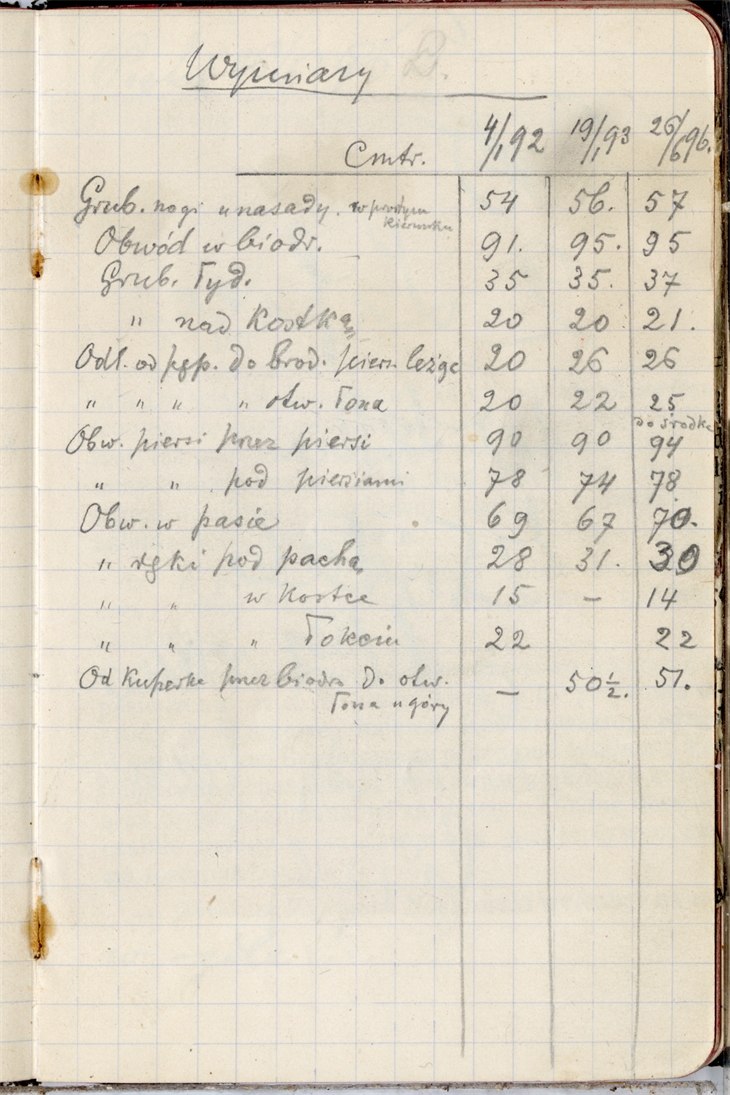 Wymiary D.
Cmtr. 4/1 92 19/1 93 26/6 96.
Grub. nogi u nasady. w prostym kierunku 54 56. 57
Obwód w biodr. 91. 95. 95
Grub. łyd. 35 35. 37
" nad Kostką 20 20 21.
Odl. od pęp. do brod. piers. leżąc 20 26 26
" " " " otw. łona 20 22 25
do środka
Obw. piersi przez piersi 90 90 94
" " pod piersiami 78 74 78
Obw. w pasie 69 67 70.
" ręki pod pachą 28 31. 30
" " w Kostce 15 – 14
" " " łokciu 22 22
Od Kuperka przez biodra do otw. – 50½. 51.
łona u góry